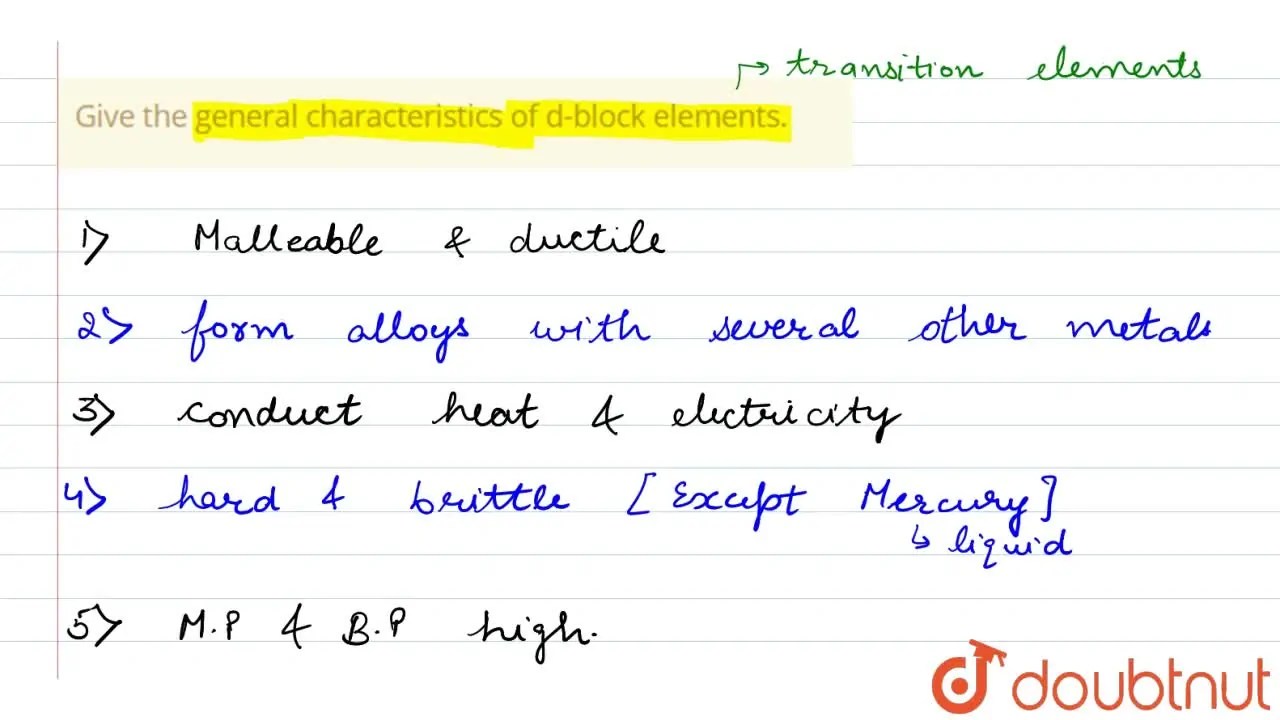 ↱ transition elements
Give the general characteristics of d-block elements.
1> Malleable & ductile
2> form alloys with several other metals
3> conduct heat & electricity
4> hard & brittle [Except Mercury]
↳ liquid
5> M.P & B.P high.
doubtnut